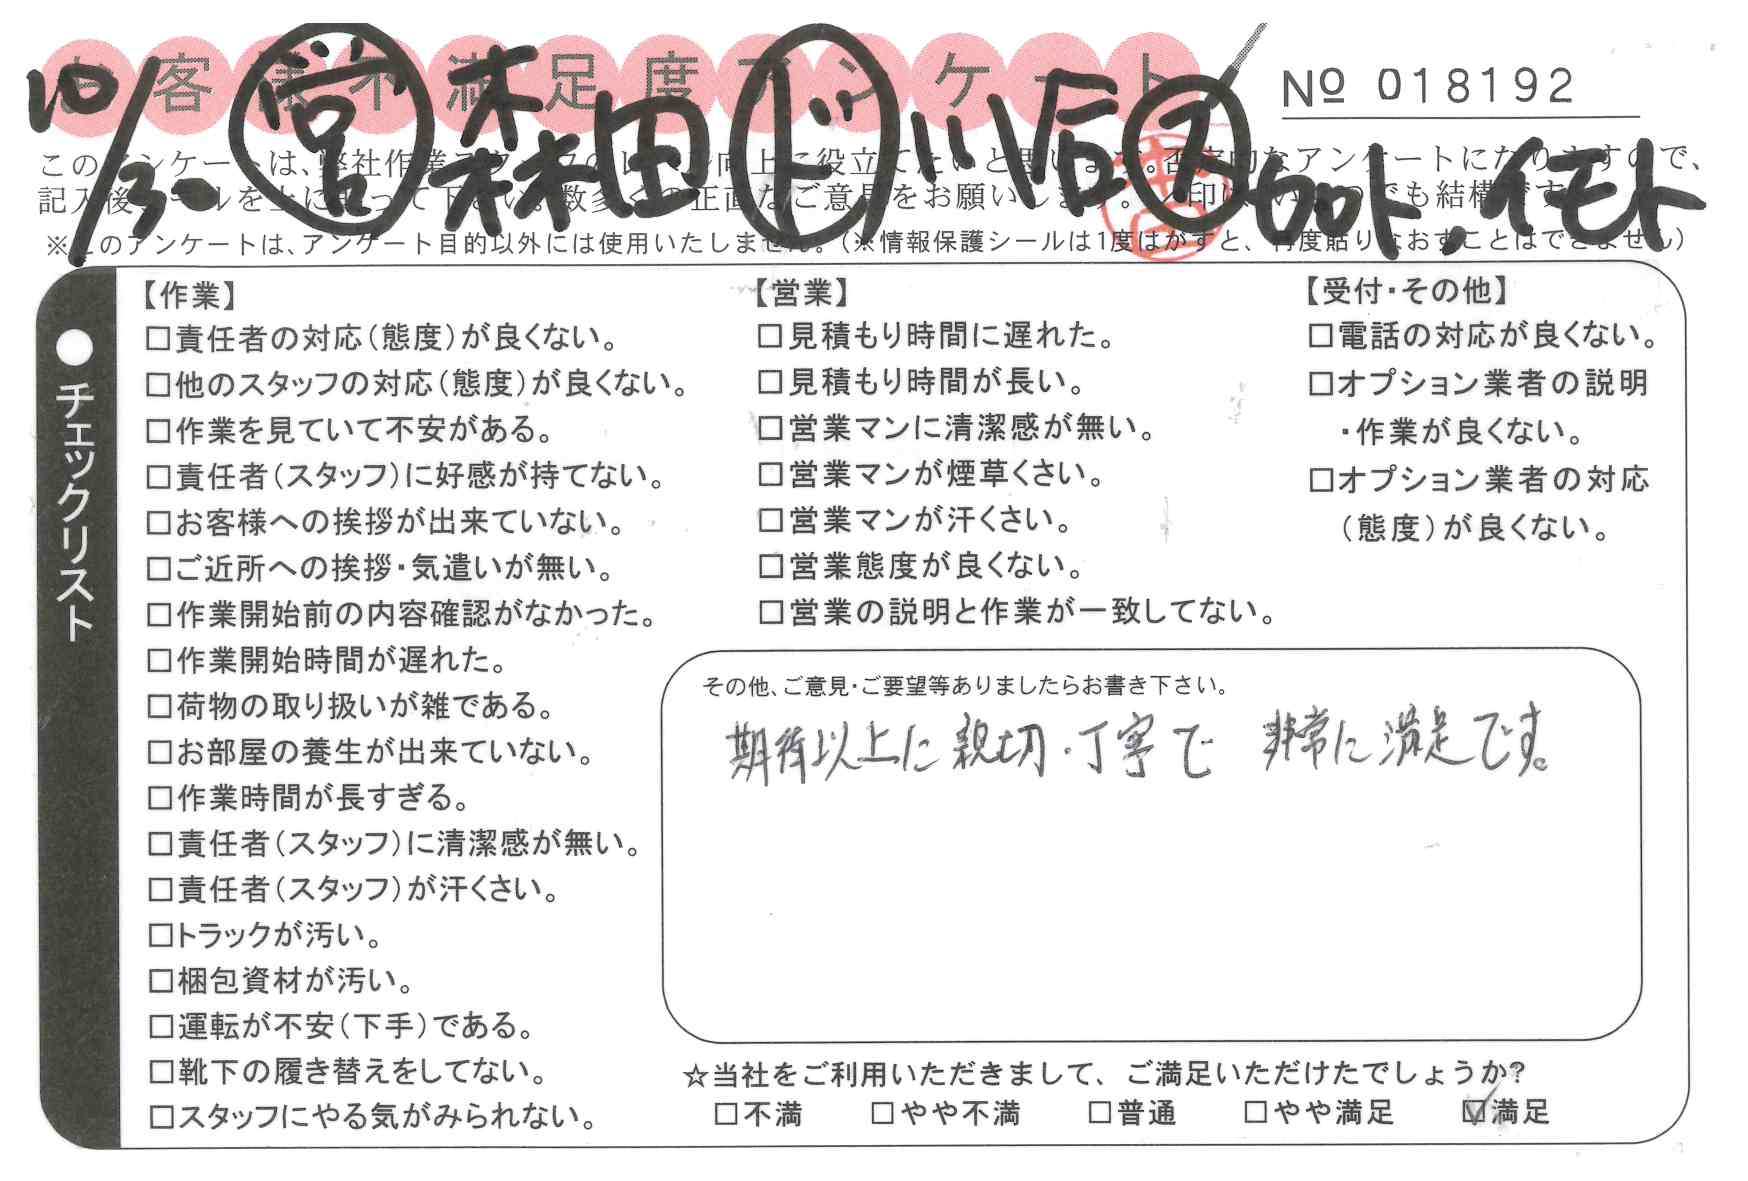 お客様不満足度アンケート
No 018192
10/30 営 森田 ド 川后 ス カロト、イモト
このアンケートは、弊社作業スタッフのレベル向上に役立てたいと思います。否定的なアンケートになりますので、
記入後シールを上に貼って下さい。数多くの正直なご意見をお願いします。
※このアンケートは、アンケート目的以外には使用いたしません。(※情報保護シールは1度はがすと、再度貼りなおすことはできません)
●チェックリスト
【作業】
□責任者の対応(態度)が良くない。
□他のスタッフの対応(態度)が良くない。
□作業を見ていて不安がある。
□責任者(スタッフ)に好感が持てない。
□お客様への挨拶が出来ていない。
□ご近所への挨拶・気遣いが無い。
□作業開始前の内容確認がなかった。
□作業開始時間が遅れた。
□荷物の取り扱いが雑である。
□お部屋の養生が出来ていない。
□作業時間が長すぎる。
□責任者(スタッフ)に清潔感が無い。
□責任者(スタッフ)が汗くさい。
□トラックが汚い。
□梱包資材が汚い。
□運転が不安(下手)である。
□靴下の履き替えをしてない。
□スタッフにやる気がみられない。
【営業】
□見積もり時間に遅れた。
□見積もり時間が長い。
□営業マンに清潔感が無い。
□営業マンが煙草くさい。
□営業マンが汗くさい。
□営業態度が良くない。
□営業の説明と作業が一致してない。
【受付・その他】
□電話の対応が良くない。
□オプション業者の説明
・作業が良くない。
□オプション業者の対応
(態度)が良くない。
その他、ご意見・ご要望等ありましたらお書き下さい。
期待以上に親切・丁寧で 非常に満足です。
☆当社をご利用いただきまして、ご満足いただけたでしょうか?
□不満 □やや不満 □普通 □やや満足 ☑満足